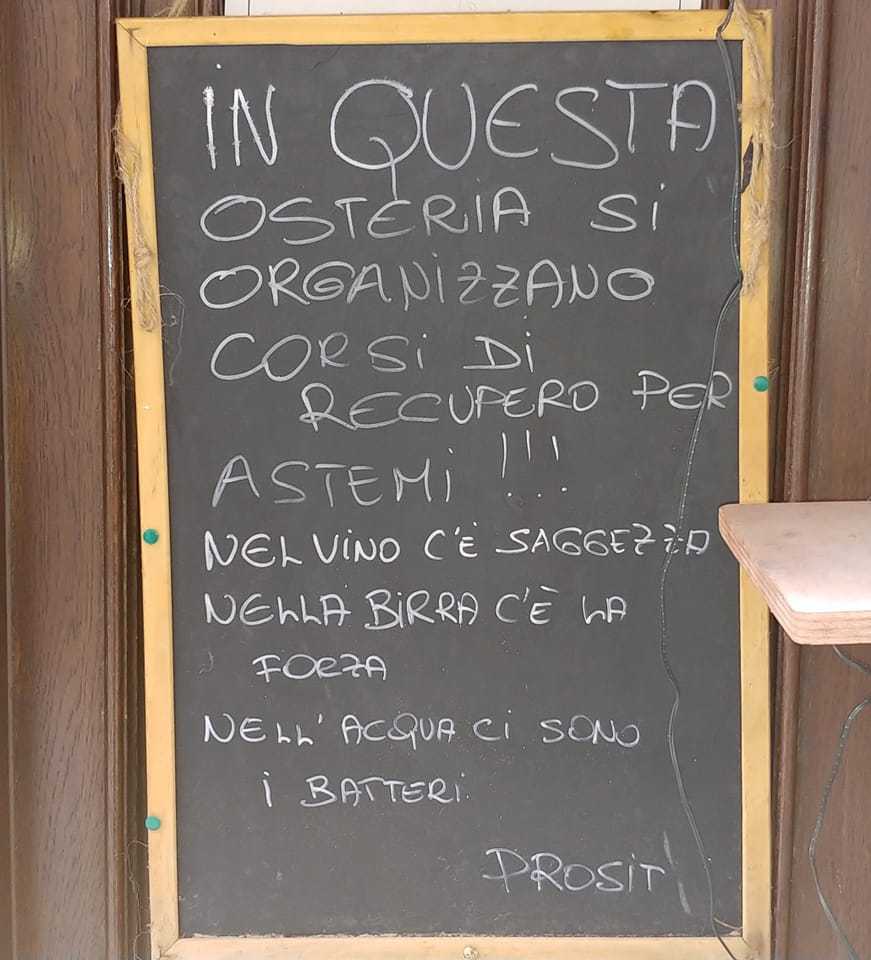 IN QUESTA
OSTERIA SI
ORGANIZZANO
CORSI DI
RECUPERO PER
ASTEMI !!!
NEL VINO C'È SAGGEZZA
NELLA BIRRA C'È LA
FORZA
NELL'ACQUA CI SONO
I BATTERI.
PROSIT